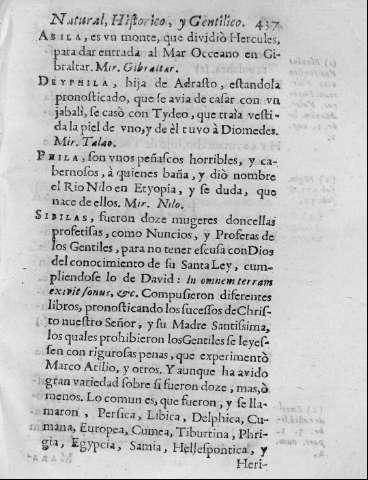 Natural, Historico, y Gentilico. 437
ABILA, es vn monte, que dividiò Hercules,
para dar entrada al Mar Occeano en Gi-
braltar. Mir. Gibraltar.
DEYPHILA, hija de Adrasto, estandola
pronosticado, que se avia de casar con vn
jabali, se casò con Tydeo, que traìa vesti-
da la piel de vno, y de èl tuvo à Diomedes.
Mir. Talao.
PHILA, son vnos peñascos horribles, y ca-
bernosos, à quienes baña, y diò nombre
el Rio Nilo en Etyopia, y se duda, que
nace de ellos. Mir. Nilo.
SIBILAS, fueron doze mugeres doncellas
profetisas, como Nuncios, y Profetas de
los Gentiles, para no tener escusa con Dios
del conocimiento de su Santa Ley, cum-
pliendose lo de David: In omnem terram
exivit sonus, &c. Compusieron diferentes
libros, pronosticando los sucessos de Chris-
to nuestro Señor, y su Madre Santissima,
los quales prohibieron los Gentiles se leyes-
sen con rigurosas penas, que experimentò
Marco Atilio, y otros. Y aunque ha avido
gran variedad sobre si fueron doze, mas, ò
menos. Lo comun es, que fueron, y se lla-
maron, Persica, Libica, Delphica, Cu-
mana, Europea, Cumea, Tiburtina, Phri-
gia, Egypcia, Samia, Hellespontica, y
Heri-